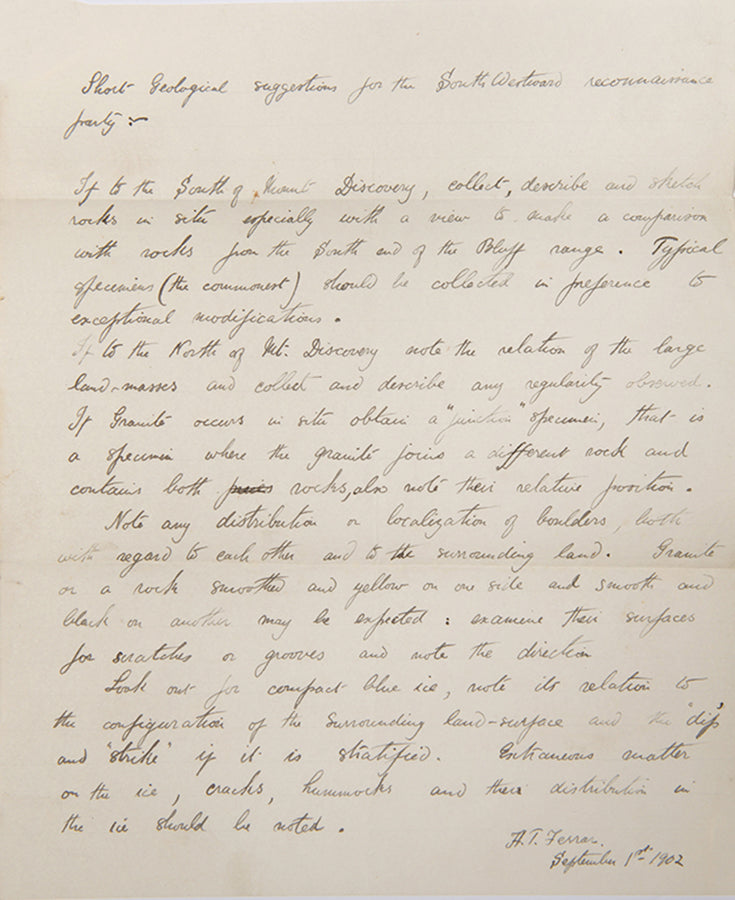 Short Geological suggestions for the South Westward reconnaissance
party :-
If to the South of Mount Discovery, collect, describe and sketch
rocks in situ especially with a view to make a comparison
with rocks from the South end of the Bluff range. Typical
specimens (the commonest) should be collected in preference to
exceptional modifications.
If to the North of Mt. Discovery note the relation of the large
land-masses and collect and describe any regularity observed.
If Granite occurs in situ obtain a "junction" specimen, that is
a specimen where the granite joins a different rock and
contains both rocks, also note their relative position.
Note any distribution or localization of boulders, both
with regard to each other and to the surrounding land. Granite
or a rock smoothed and yellow on one side and smooth and
black on another may be expected : examine their surfaces
for scratches or grooves and note the direction
Look out for compact blue ice, note its relation to
the configuration of the surrounding land-surface and the "dip"
and "strike" if it is stratified. Extraneous matter
on the ice, cracks, hummocks and their distribution in
the ice should be noted.
H.T. Ferrar.
September 1st 1902